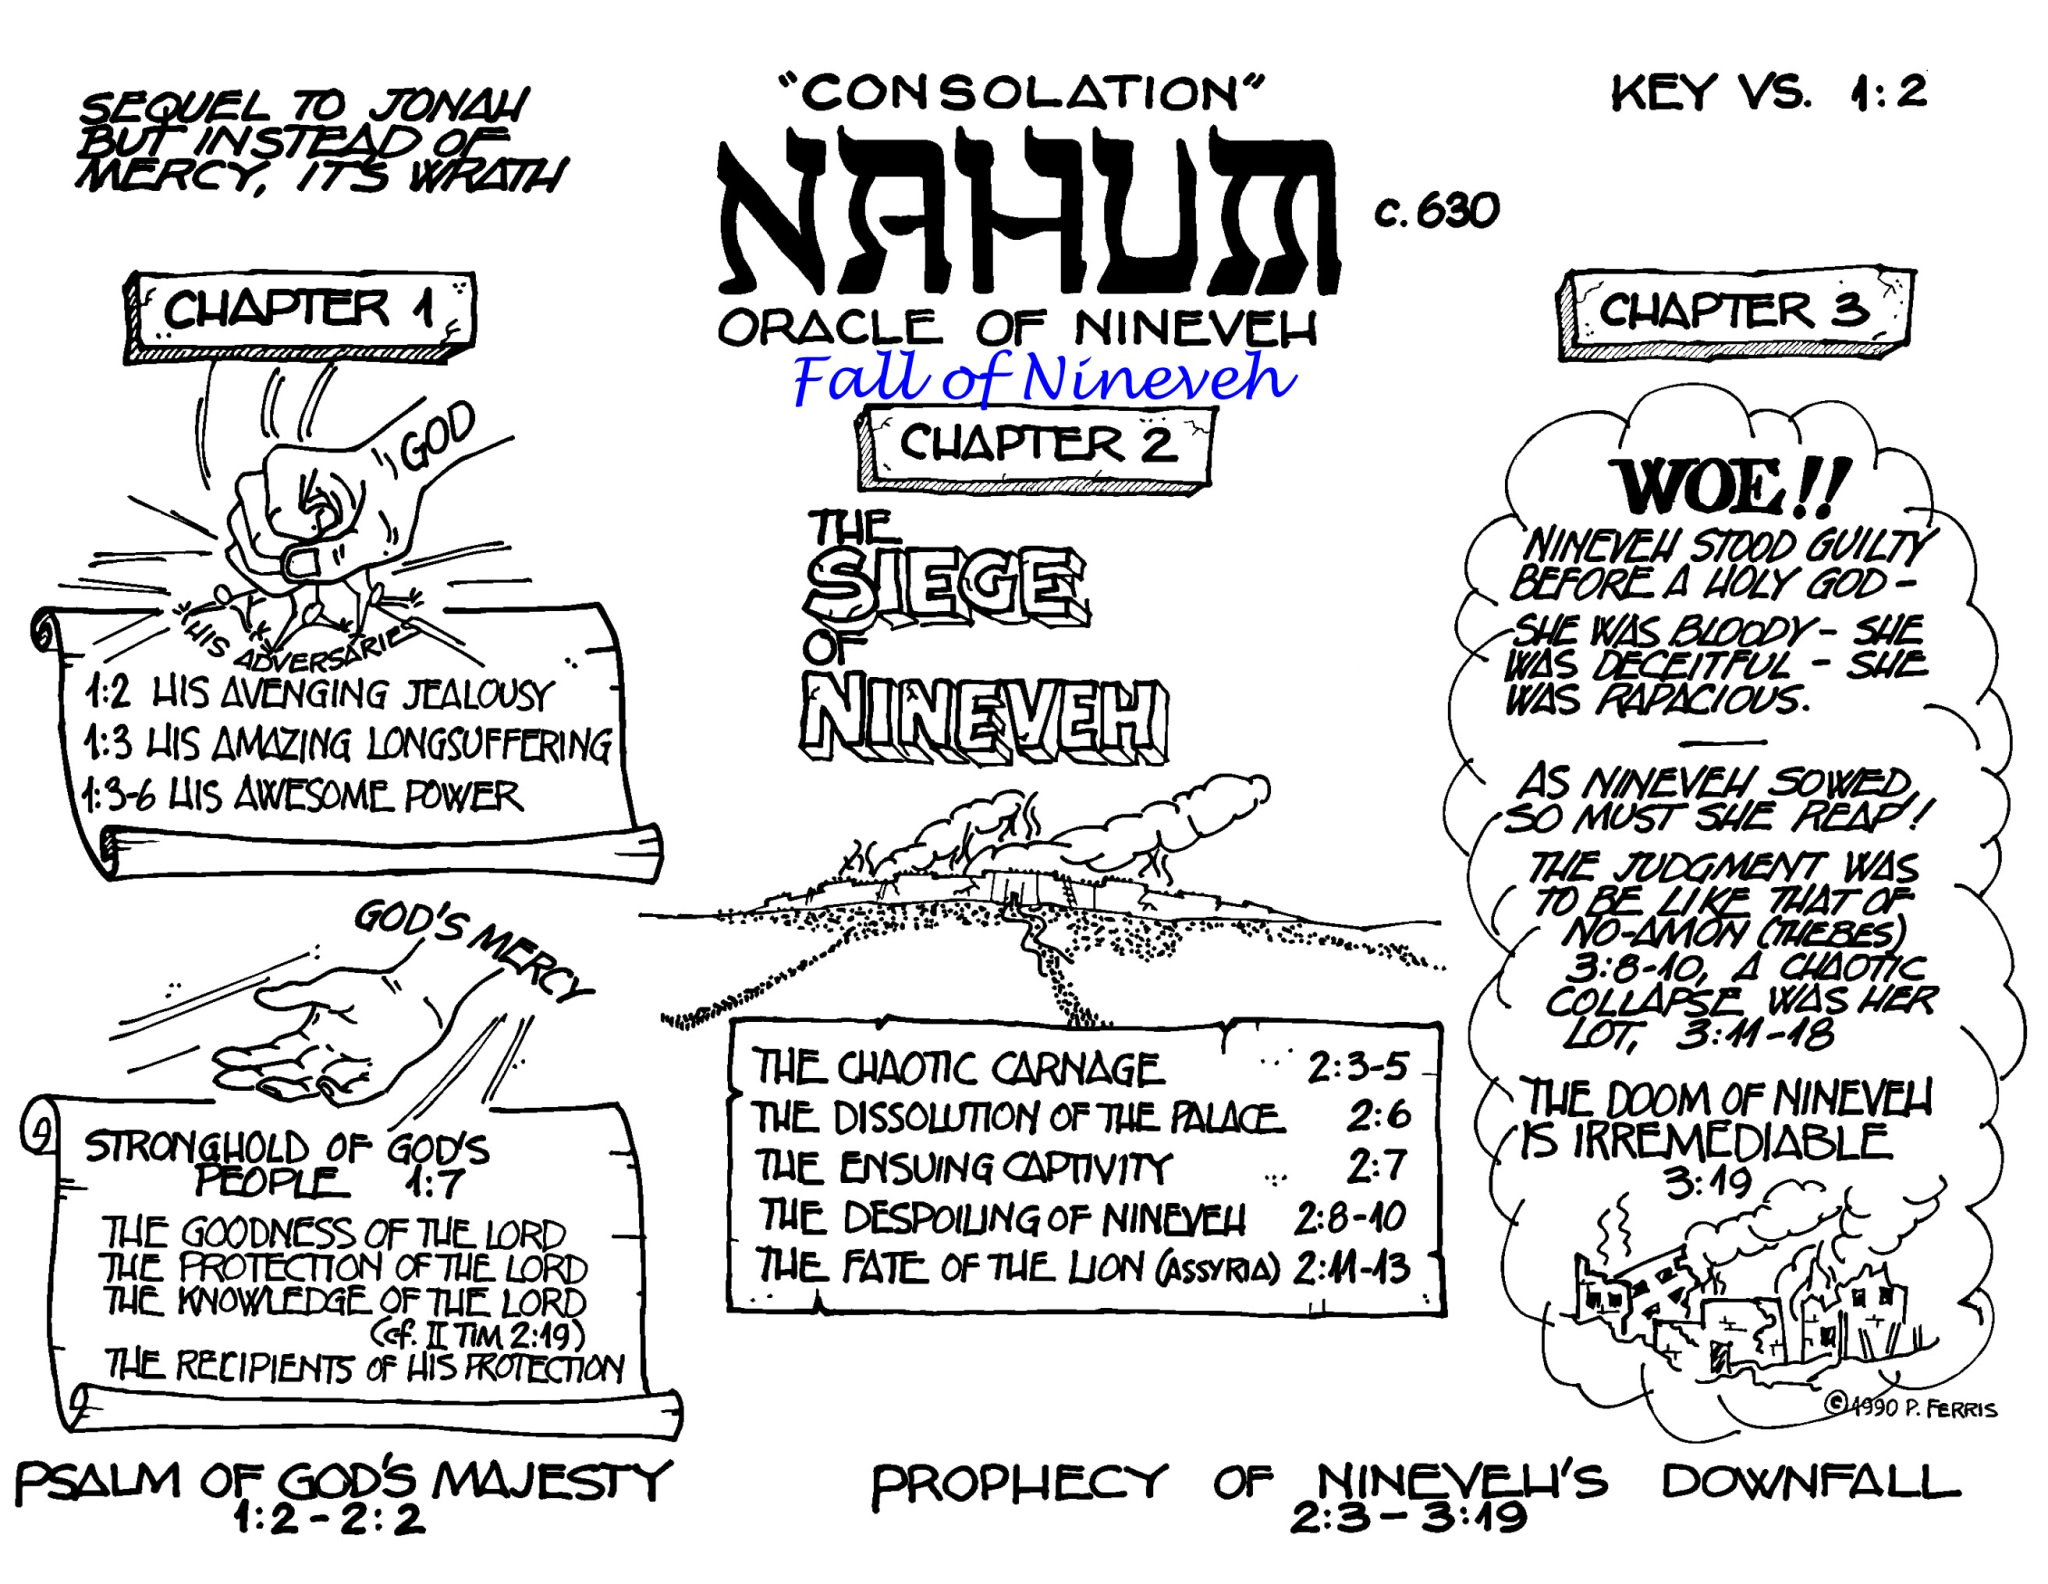 SEQUEL TO JONAH
BUT INSTEAD OF
MERCY, IT'S WRATH
"CONSOLATION"
NAHUM
c. 630
ORACLE OF NINEVEH
Fall of Nineveh
KEY VS. 1:2
CHAPTER 1
GOD
HIS ADVERSARIES
1:2 HIS AVENGING JEALOUSY
1:3 HIS AMAZING LONGSUFFERING
1:3-6 HIS AWESOME POWER
GOD'S MERCY
STRONGHOLD OF GOD'S
PEOPLE 1:7
THE GOODNESS OF THE LORD
THE PROTECTION OF THE LORD
THE KNOWLEDGE OF THE LORD
(cf. II TIM 2:19)
THE RECIPIENTS OF HIS PROTECTION
PSALM OF GOD'S MAJESTY
1:2-2:2
CHAPTER 2
THE
SIEGE
OF
NINEVEH
THE CHAOTIC CARNAGE 2:3-5
THE DISSOLUTION OF THE PALACE 2:6
THE ENSUING CAPTIVITY 2:7
THE DESPOILING OF NINEVEH 2:8-10
THE FATE OF THE LION (ASSYRIA) 2:11-13
CHAPTER 3
WOE!!
NINEVEH STOOD GUILTY
BEFORE A HOLY GOD-
SHE WAS BLOODY - SHE
WAS DECEITFUL - SHE
WAS RAPACIOUS.
AS NINEVEH SOWED,
SO MUST SHE REAP!
THE JUDGMENT WAS
TO BE LIKE THAT OF
NO-AMON (THEBES)
3:8-10, A CHAOTIC
COLLAPSE WAS HER
LOT, 3:11-18
THE DOOM OF NINEVEH
IS IRREMEDIABLE
3:19
©1990 P. FERRIS
PROPHECY OF NINEVEH'S DOWNFALL
2:3-3:19